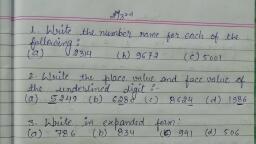 1. Write the number name for each of the
following :
(a) 2314 (b) 9672 (c) 5001
2. Write the place value and face value of
the underlined digit :-
(a) 5249 (b) 628 (c) 8624 (d) 1986
3. Write in expanded form:
(a) 786 (b) 834 (c) 941 (d) 506